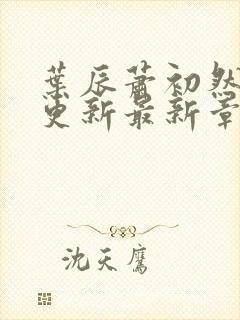 葉辰蕭初然
更新最新章
沈天鷹